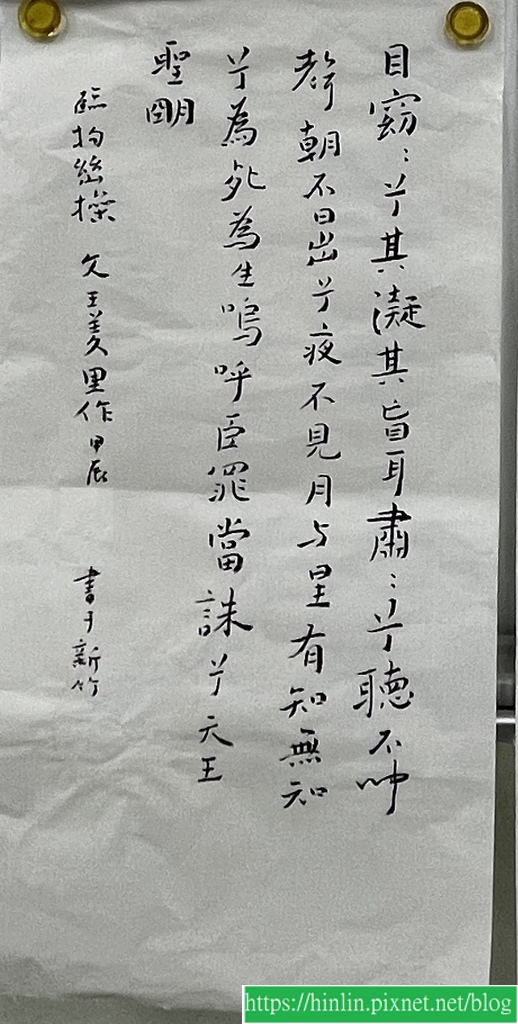 目窈〻兮其凝其盲耳肅〻兮聽不吅
聲朝不日出兮夜不見月与星有知無知
兮為死為生嗚呼臣罪當誅兮天王
聖明
臨拘幽操 文王羑里作 甲辰 書于新竹
https://hinlin.pixnet.net/blog